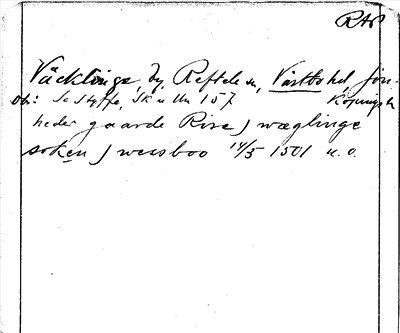 RAP
Väcklinge, by, Reftele sn, Västbo hd, Jön-
Obs: Se Styffe, Sk u Un 157 köpings l
heder gaarde Rise j wæglinge
soken j wesboo 14/5 1501 u. o.